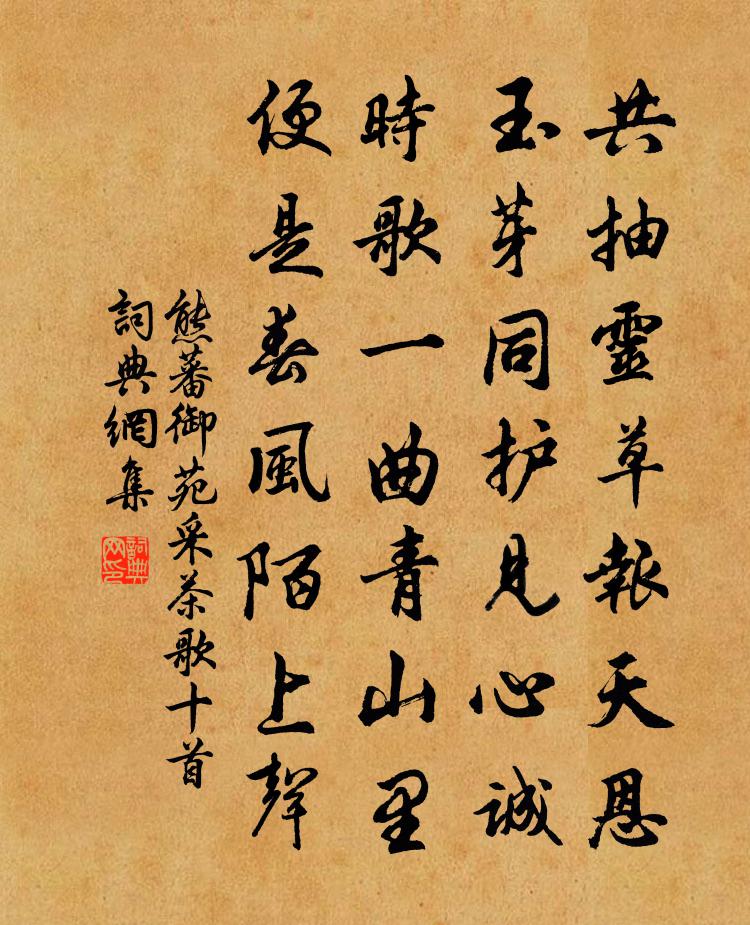 共抽靈草報天恩
玉芽同护見心誠
時歌一曲青山里
便是春風陌上聲
熊蕃御苑采茶歌十首
詞典網集
詞典网印